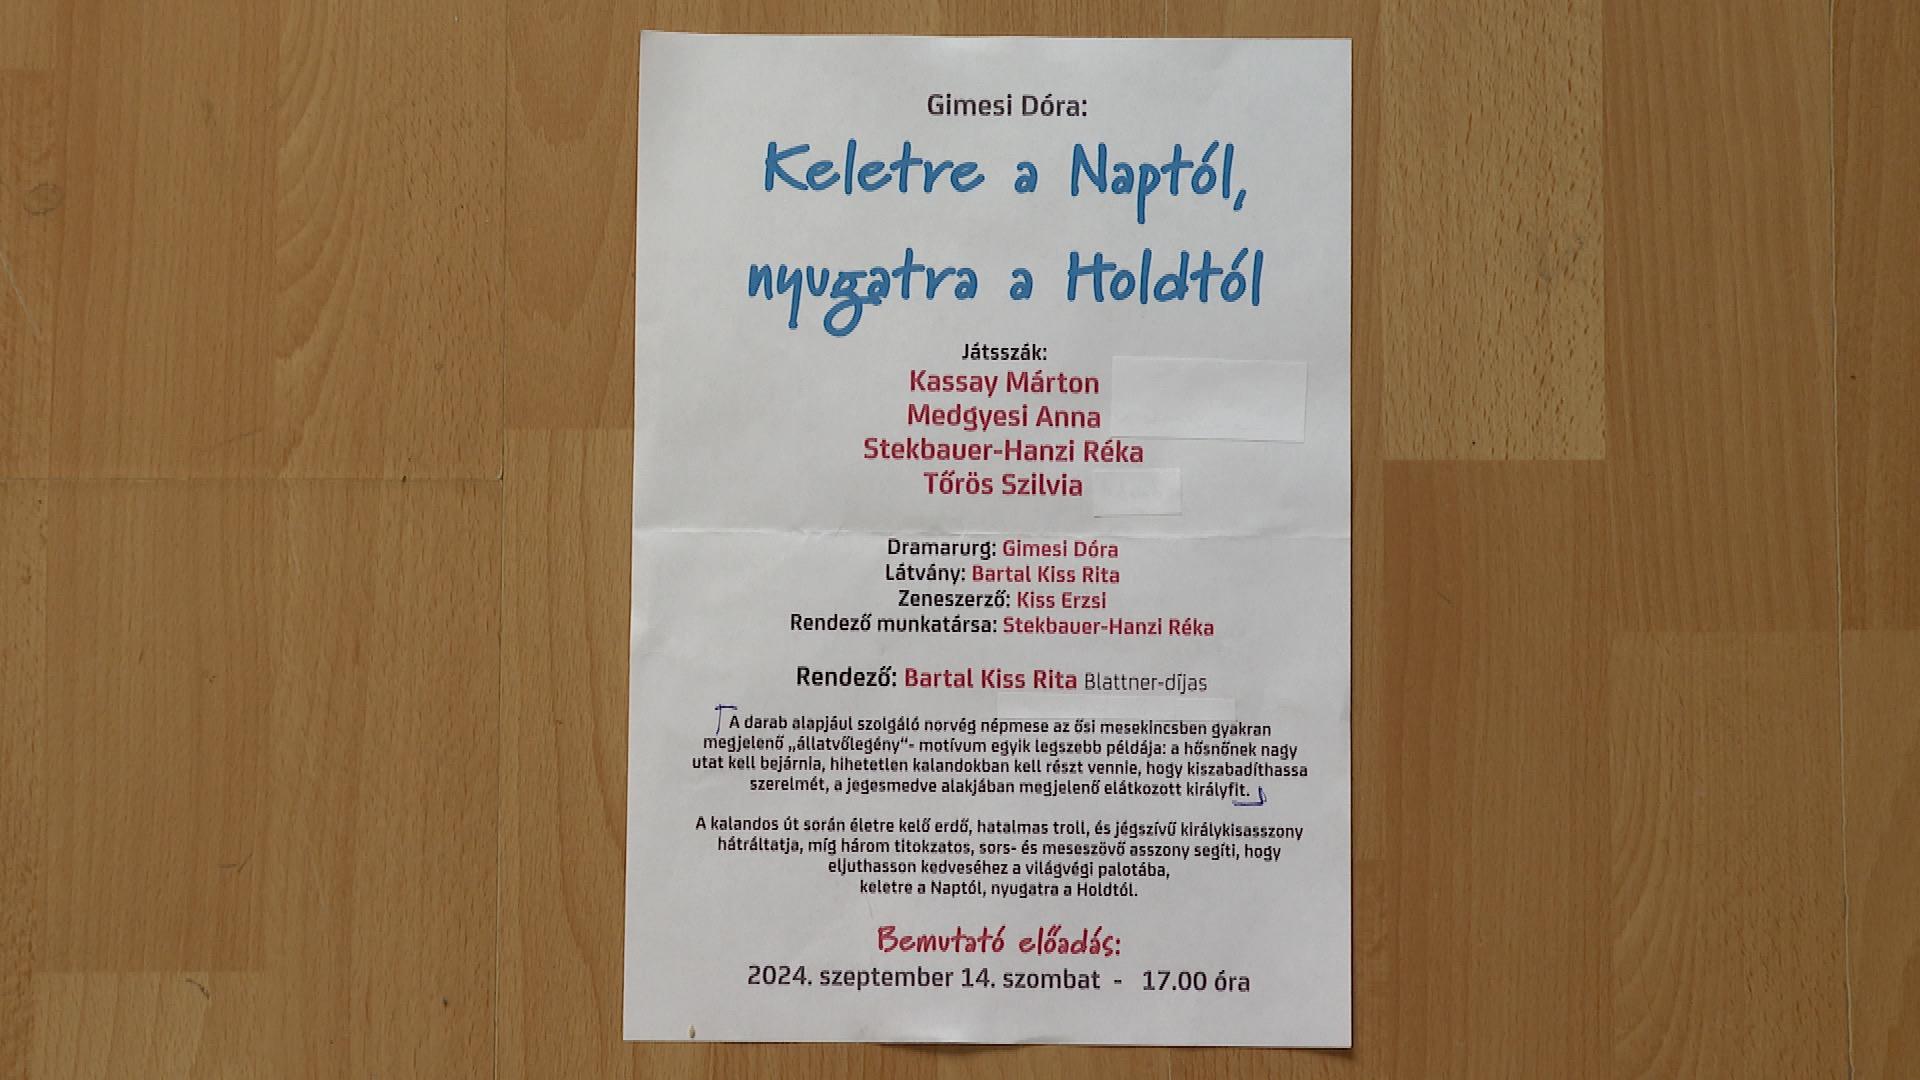 Gimesi Dóra:
Keletre a Naptól,
nyugatra a Holdtól
Játsszák:
Kassay Márton
Medgyesi Anna
Stekbauer-Hanzi Réka
Tőrös Szilvia
Dramarurg: Gimesi Dóra
Látvány: Bartal Kiss Rita
Zeneszerző: Kiss Erzsi
Rendező munkatársa: Stekbauer-Hanzi Réka
Rendező: Bartal Kiss Rita Blattner-díjas
A darab alapjául szolgáló norvég népmese az ősi mesekincsben gyakran
megjelenő „állatvőlegény“- motívum egyik legszebb példája: a hősnőnek nagy
utat kell bejárnia, hihetetlen kalandokban kell részt vennie, hogy kiszabadíthassa
szerelmét, a jegesmedve alakjában megjelenő elátkozott királyfit.
A kalandos út során életre kelő erdő, hatalmas troll, és jégszívű királykisasszony
hátráltatja, míg három titokzatos, sors- és meseszövő asszony segíti, hogy
eljuthasson kedveséhez a világvégi palotába,
keletre a Naptól, nyugatra a Holdtól.
Bemutató előadás:
2024. szeptember 14. szombat - 17.00 óra